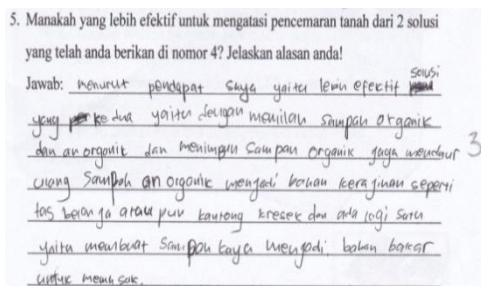 5. Manakah yang lebih efektif untuk mengatasi pencemaran tanah dari 2 solusi
yang telah anda berikan di nomor 4? Jelaskan alasan anda!
Jawab: menurut pendapat saya yaitu lebih efectif solusi
yang ke dua yaitu dengan memilah sampah organik
dan an organik dan sampah organik juga mendaur
ulang sampah an organik menjadi bahan kerajinan seperti
tas belanja atau pun kantong kresek dan ada lagi satu
yaitu membuat sampah kayu menjadi bahan bakar
untuk memasak.
3